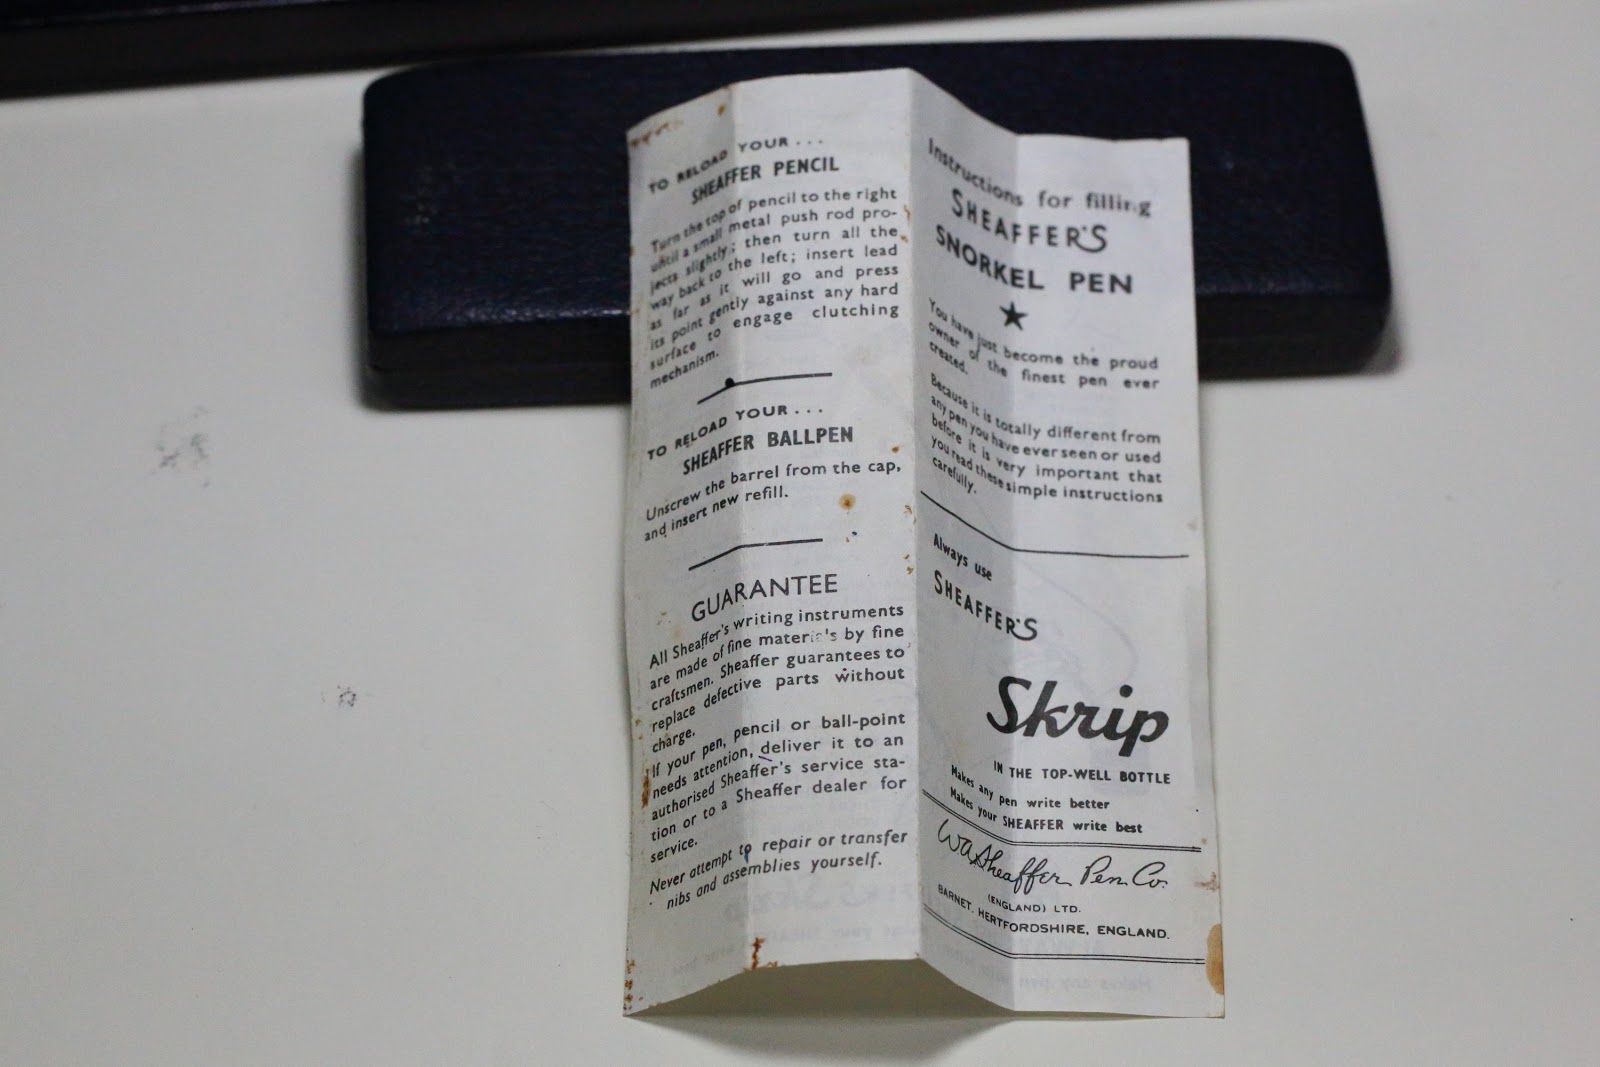 TO RELOAD YOUR . . .
SHEAFFER PENCIL
Turn the top of pencil to the right
until a small metal push rod pro-
jects slightly; then turn all the
way back to the left; insert lead
as far as it will go and press
its point gently against any hard
surface to engage clutching
mechanism.
TO RELOAD YOUR . . .
SHEAFFER BALLPEN
Unscrew the barrel from the cap,
and insert new refill.
GUARANTEE
All Sheaffer's writing instruments
are made of fine materials by fine
craftsmen. Sheaffer guarantees to
replace defective parts without
charge.
If your pen, pencil or ball-point
needs attention, deliver it to an
authorised Sheaffer's service sta-
tion or to a Sheaffer dealer for
service.
Never attempt to repair or transfer
nibs and assemblies yourself.
Instructions for filling
SHEAFFER'S
SNORKEL PEN
You have just become the proud
owner of the finest pen ever
created.
Because it is totally different from
any pen you have ever seen or used
before it is very important that
you read these simple instructions
carefully.
Always use
SHEAFFER'S
Skrip
IN THE TOP-WELL BOTTLE
Makes any pen write better
Makes your SHEAFFER write best
W.A. Sheaffer Pen Co.
(ENGLAND) LTD.
BARNET, HERTFORDSHIRE, ENGLAND.